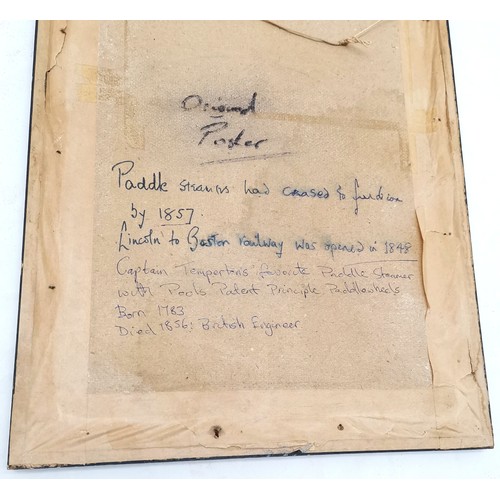 Original
Poster
Paddle steamers had ceased to function
by 1857.
Lincoln to Boston railway was opened in 1848
Captain Temperton's favorite Paddle Steamer
with Pools Patent Principle Paddlewheels
Born 1783
Died 1856: British Engineer